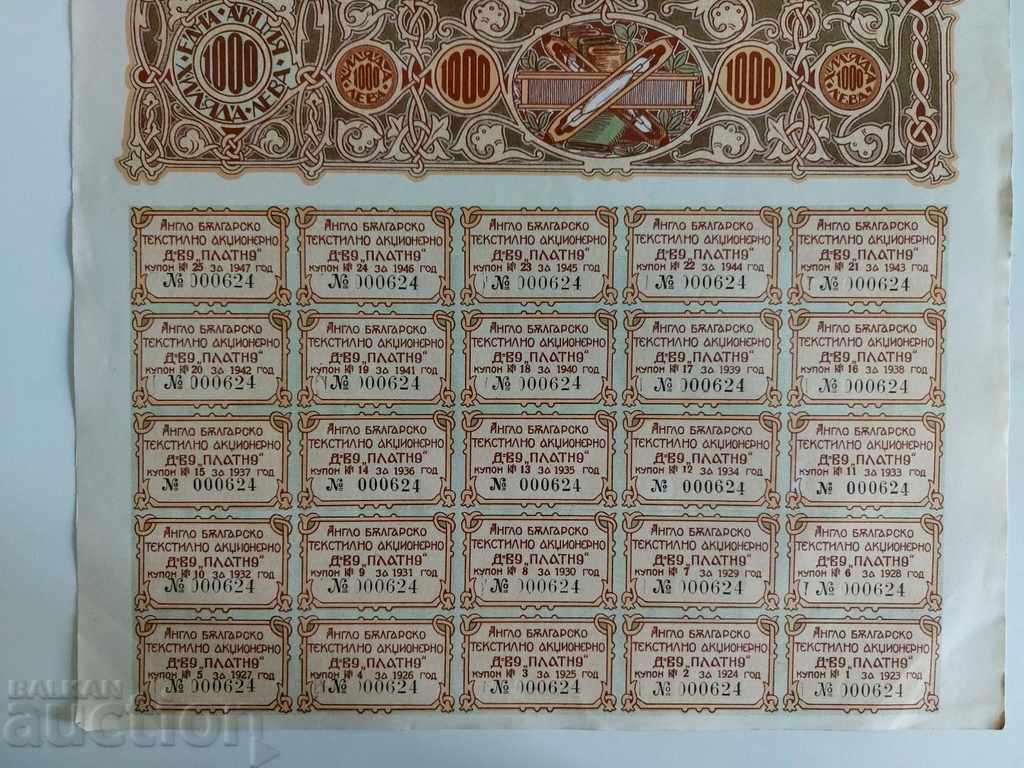 ЕДНА АКЦИЯ
1000
ХИЛЯДА ЛЕВА
ХИЛЯДА
1000
ЛЕВА
1000
1000
ХИЛЯДА
1000
ЛЕВА
Англо Бѫлгарско
текстилно акционерно
Д-во „Платно“
купон № 25 за 1947 год
№ 000624
Англо Бѫлгарско
текстилно акционерно
Д-во „Платно“
купон № 24 за 1946 год
№ 000624
Англо Бѫлгарско
текстилно акционерно
Д-во „Платно“
купон № 23 за 1945 год
000624
Англо Бѫлгарско
текстилно акционерно
Д-во „Платно“
купон № 22 за 1944 год
№ 000624
Англо Бѫлгарско
текстилно акционерно
Д-во „Платно“
купон № 21 за 1943 год
№ 000624
Англо Бѫлгарско
текстилно акционерно
Д-во „Платно“
купон № 20 за 1942 год
№ 000624
Англо Бѫлгарско
текстилно акционерно
Д-во „Платно“
купон № 19 за 1941 год
№ 000624
Англо Бѫлгарско
текстилно акционерно
Д-во „Платно“
купон № 18 за 1940 год
№ 000624
Англо Бѫлгарско
текстилно акционерно
Д-во „Платно“
купон № 17 за 1939 год
№ 000624
Англо Бѫлгарско
текстилно акционерно
Д-во „Платно“
купон № 16 за 1938 год
№ 000624
Англо Бѫлгарско
текстилно акционерно
Д-во „Платно“
купон № 15 за 1937 год
№ 000624
Англо Бѫлгарско
текстилно акционерно
Д-во „Платно“
купон № 14 за 1936 год
№ 000624
Англо Бѫлгарско
текстилно акционерно
Д-во „Платно“
купон № 13 за 1935 год
№ 000624
Англо Бѫлгарско
текстилно акционерно
Д-во „Платно“
купон № 12 за 1934 год
№ 000624
Англо Бѫлгарско
текстилно акционерно
Д-во „Платно“
купон № 11 за 1933 год
№ 000624
Англо Бѫлгарско
текстилно акционерно
Д-во „Платно“
купон № 10 за 1932 год
№ 000624
Англо Бѫлгарско
текстилно акционерно
Д-во „Платно“
купон № 9 за 1931 год
№ 000624
Англо Бѫлгарско
текстилно акционерно
Д-во „Платно“
купон № 8 за 1930 год
№ 000624
Англо Бѫлгарско
текстилно акционерно
Д-во „Платно“
купон № 7 за 1929 год
№ 000624
Англо Бѫлгарско
текстилно акционерно
Д-во „Платно“
купон № 6 за 1928 год
№ 000624
Англо Бѫлгарско
текстилно акционерно
Д-во „Платно“
купон № 5 за 1927 год
№ 000624
Англо Бѫлгарско
текстилно акционерно
Д-во „Платно“
купон № 4 за 1926 год
№ 000624
Англо Бѫлгарско
текстилно акционерно
Д-во „Платно“
купон № 3 за 1925 год
№ 000624
Англо Бѫлгарско
текстилно акционерно
Д-во „Платно“
купон № 2 за 1924 год
№ 000624
Англо Бѫлгарско
текстилно акционерно
Д-во „Платно“
купон № 1 за 1923 год
№ 000624
BALKAN
auction